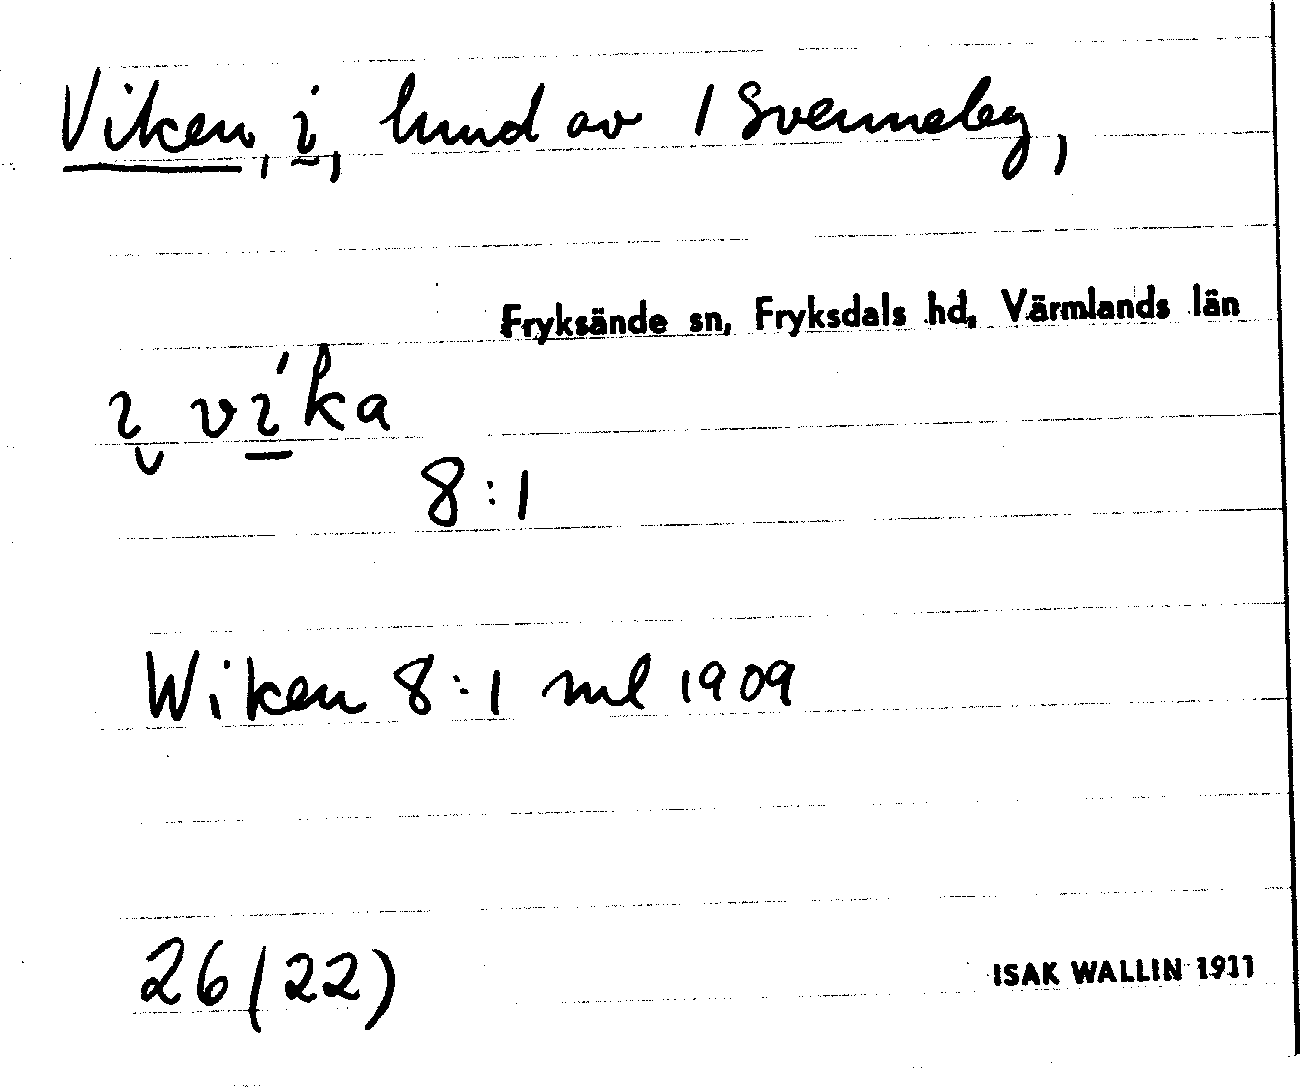 Viken, i, hmd av 1 Svenneby,
Fryksände sn, Fryksdals hd, Värmlands län
ɩ vɩ́ka
8:1
Wiken 8:1 ml 1909
26 (22)
ISAK WALLIN 1911